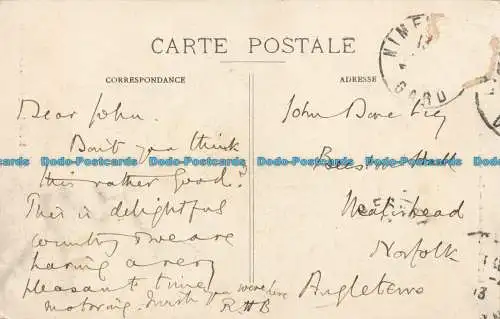 CARTE POSTALE
CORRESPONDANCE
ADRESSE
NIMES
GARD
Dear John.
Don't you think
this rather good?
This is delightful
country & we are
having a very
pleasant time
motoring. Wish you were here
R H B
John
Hall
Norfolk
Angleterre
Dodo-Postcards Dodo-Postcards Dodo-Postcards Dodo-Postcards